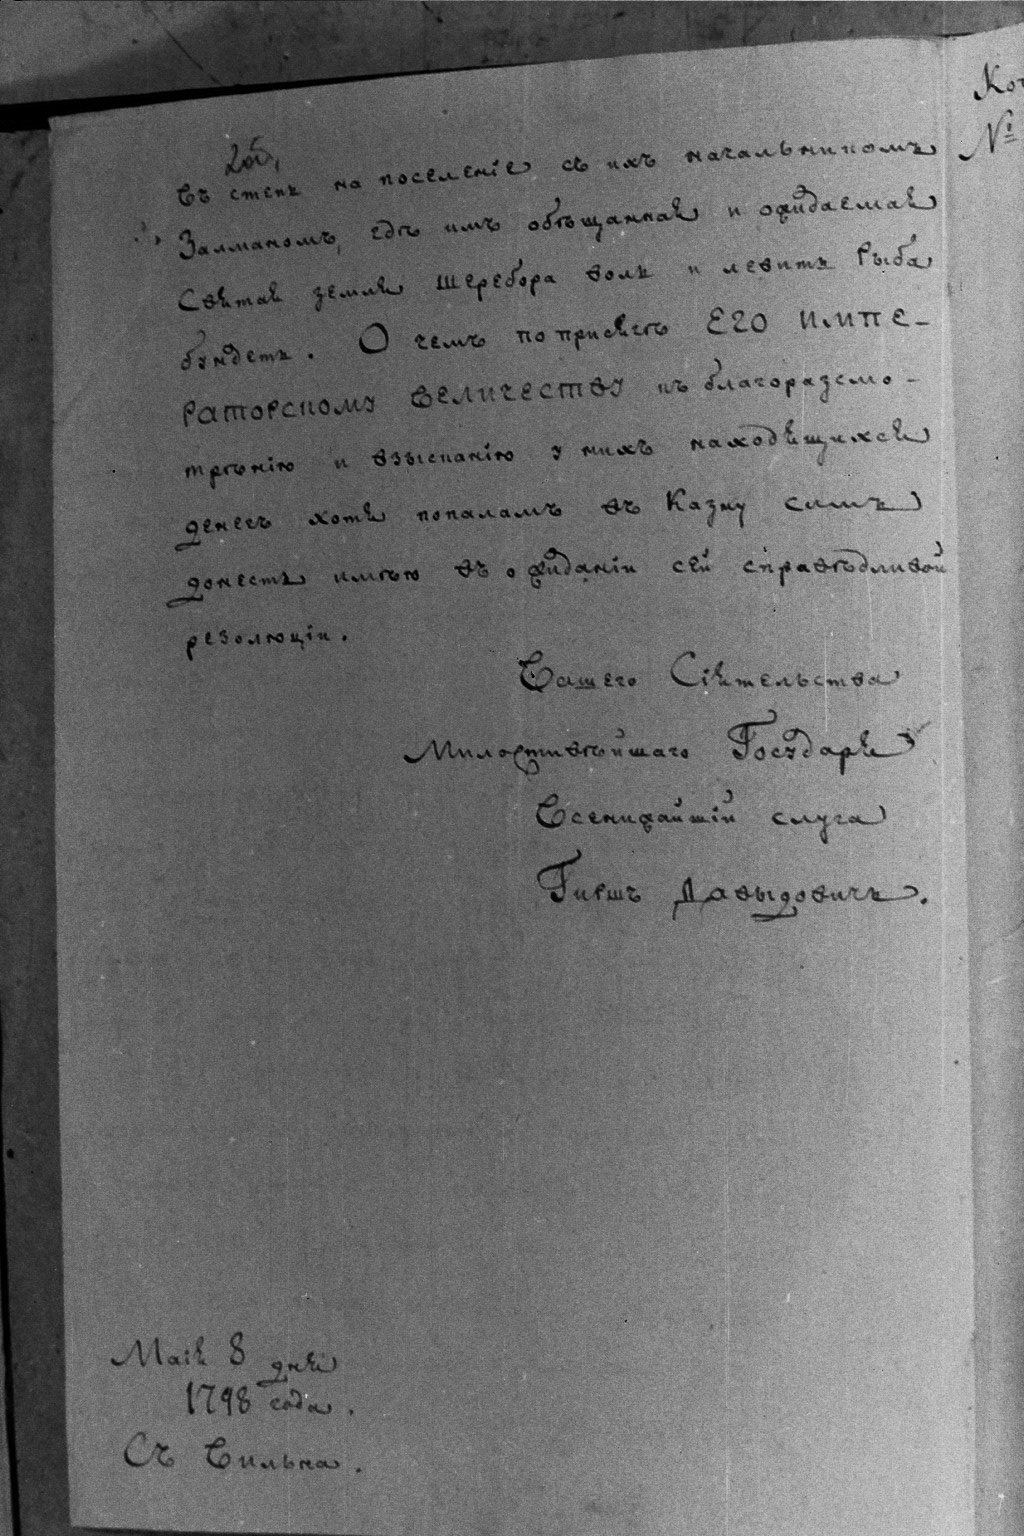 2об.
Въ степь на поселеніе съ ихъ начальникомъ
Залманомъ, гдѣ имъ обѣщанная и ожидаемая
Святая земля Шеребора волъ и левитъ Рыба
будетъ. О чемъ по присягѣ ЕГО ИМПЕ-
РАТОРСКОМУ ВЕЛИЧЕСТВУ къ благоразсмо-
трѣнію и взысканію у нихъ находящихся
денегъ хотя пополамъ въ Казну симъ
донесть имѣю въ ожиданіи сей справѣдливой
резолюціи.
Вашего Сіятельства
Милостивѣйшаго Государя
Всенижайшій слуга
Гиршъ Давыдовичъ.
Маія 8 дня
1798 года.
Съ Вильна.
Ко
№